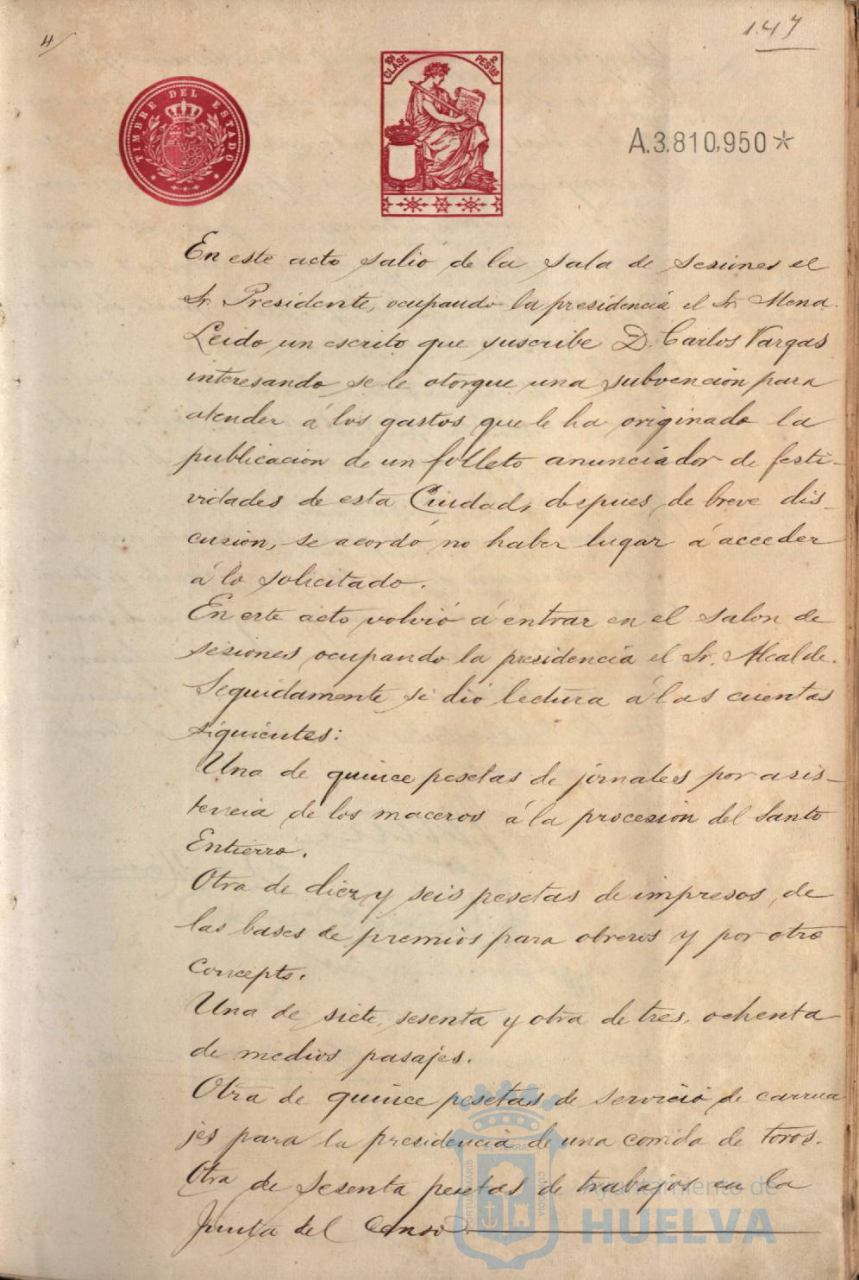 4/
147
TIMBRE DEL ESTADO
10ª CLASE 2 PESTAS
A.3.810,950*
En este acto salió de la sala de sesiones el
Sr. Presidente, ocupando la presidencia el Sr. Mena.
Leido un escrito que suscribe D. Carlos Vargas
interesando se le otorgue una subvencion para
atender á los gastos que le ha originado la
publicacion de un folleto anunciador de festi-
vidades de esta Ciudad, despues de breve dis-
cusion, se acordó no haber lugar á acceder
á lo solicitado.
En este acto volvió á entrar en el salon de
sesiones ocupando la presidencia el Sr. Alcalde.
Seguidamente se dió lectura á las cuentas
siguientes:
Una de quince pesetas de jornales por asis-
tencia de los maceros á la procesion del Santo
Entierro.
Otra de diez y seis pesetas de impresos, de
las bases de premios para obreros y por otro
concepto.
Una de siete, sesenta y otra de tres, ochenta
de medios pasajes.
Otra de quince pesetas de servicio de carrua
jes para la presidencia de una corrida de toros.
Otra de sesenta pesetas de trabajos en la
Junta del Censo
Ayuntamiento de
HUELVA